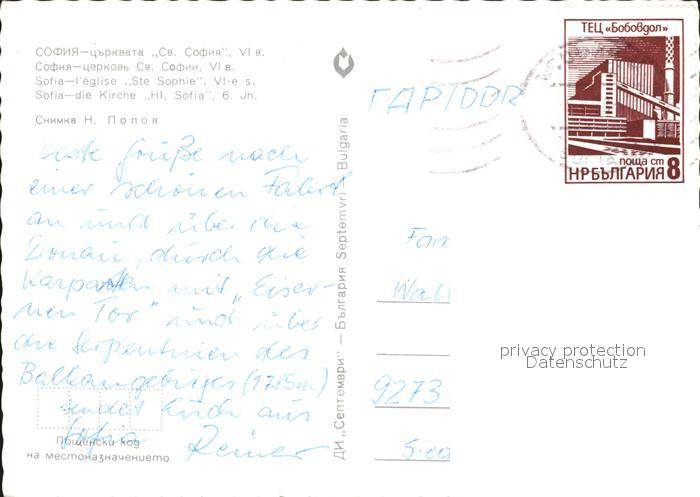 СОФИЯ—църквата „Св. София", VI в.
София—церковь Св. Софии, VI в.
Sofia—l'église „Ste Sophie", VI-e s.
Sofia—die Kirche „Hl, Sofia", 6. Jh.
Снимка Н. Попов
Erste Grüße nach
einer schönen Fahrt
an und über die
Donau, durch die
Karpaten mit „Eiser-
nen Tor" und über
die Serpentinen des
Balkangebirges (1785m)
sendet Euch aus
Sofia Reiner
Пощенски код
на местоназначението
ДИ „Септември" — България Septemvri — Bulgaria
ТЕЦ „Бобовдол"
поща ст
НР БЪЛГАРИЯ 8
ГДР / DDR
Fam
9273
privacy protection
Datenschutz